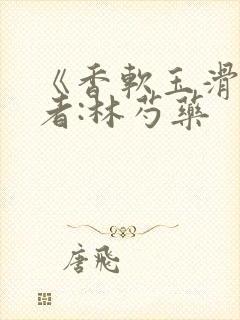 《香軟玉滑
者:林芍藥
唐飛